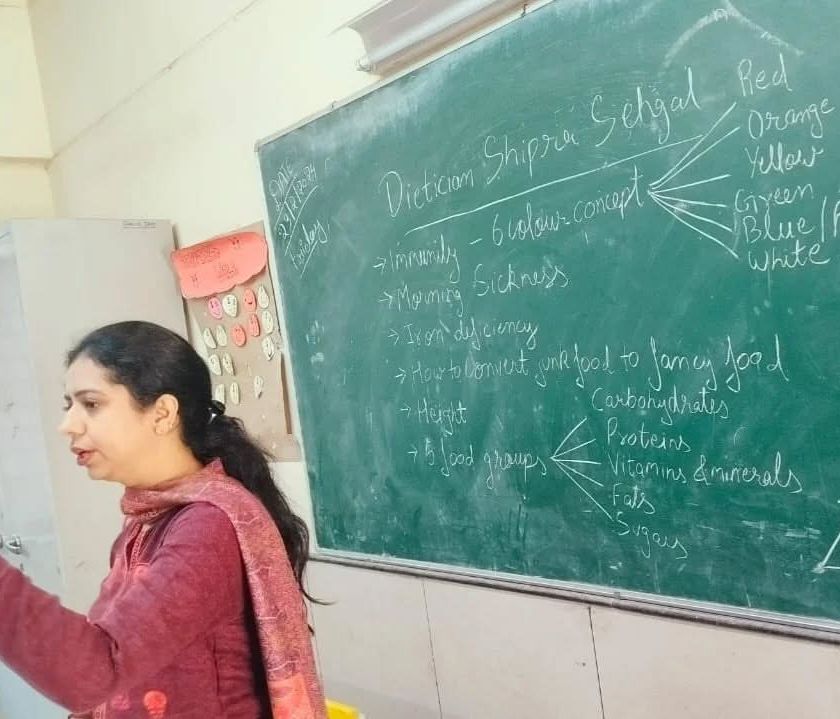 DATE
Friday
Dietician Shipra Sehgal
→ Immunity - 6 colour concept
Red
Orange
Yellow
Green
Blue/
White
→ Morning Sickness
→ Iron deficiency
→ How to convert junk food to fancy food
→ Height
→ 5 food groups
Carbohydrates
Proteins
Vitamins & minerals
Fats
Sugars